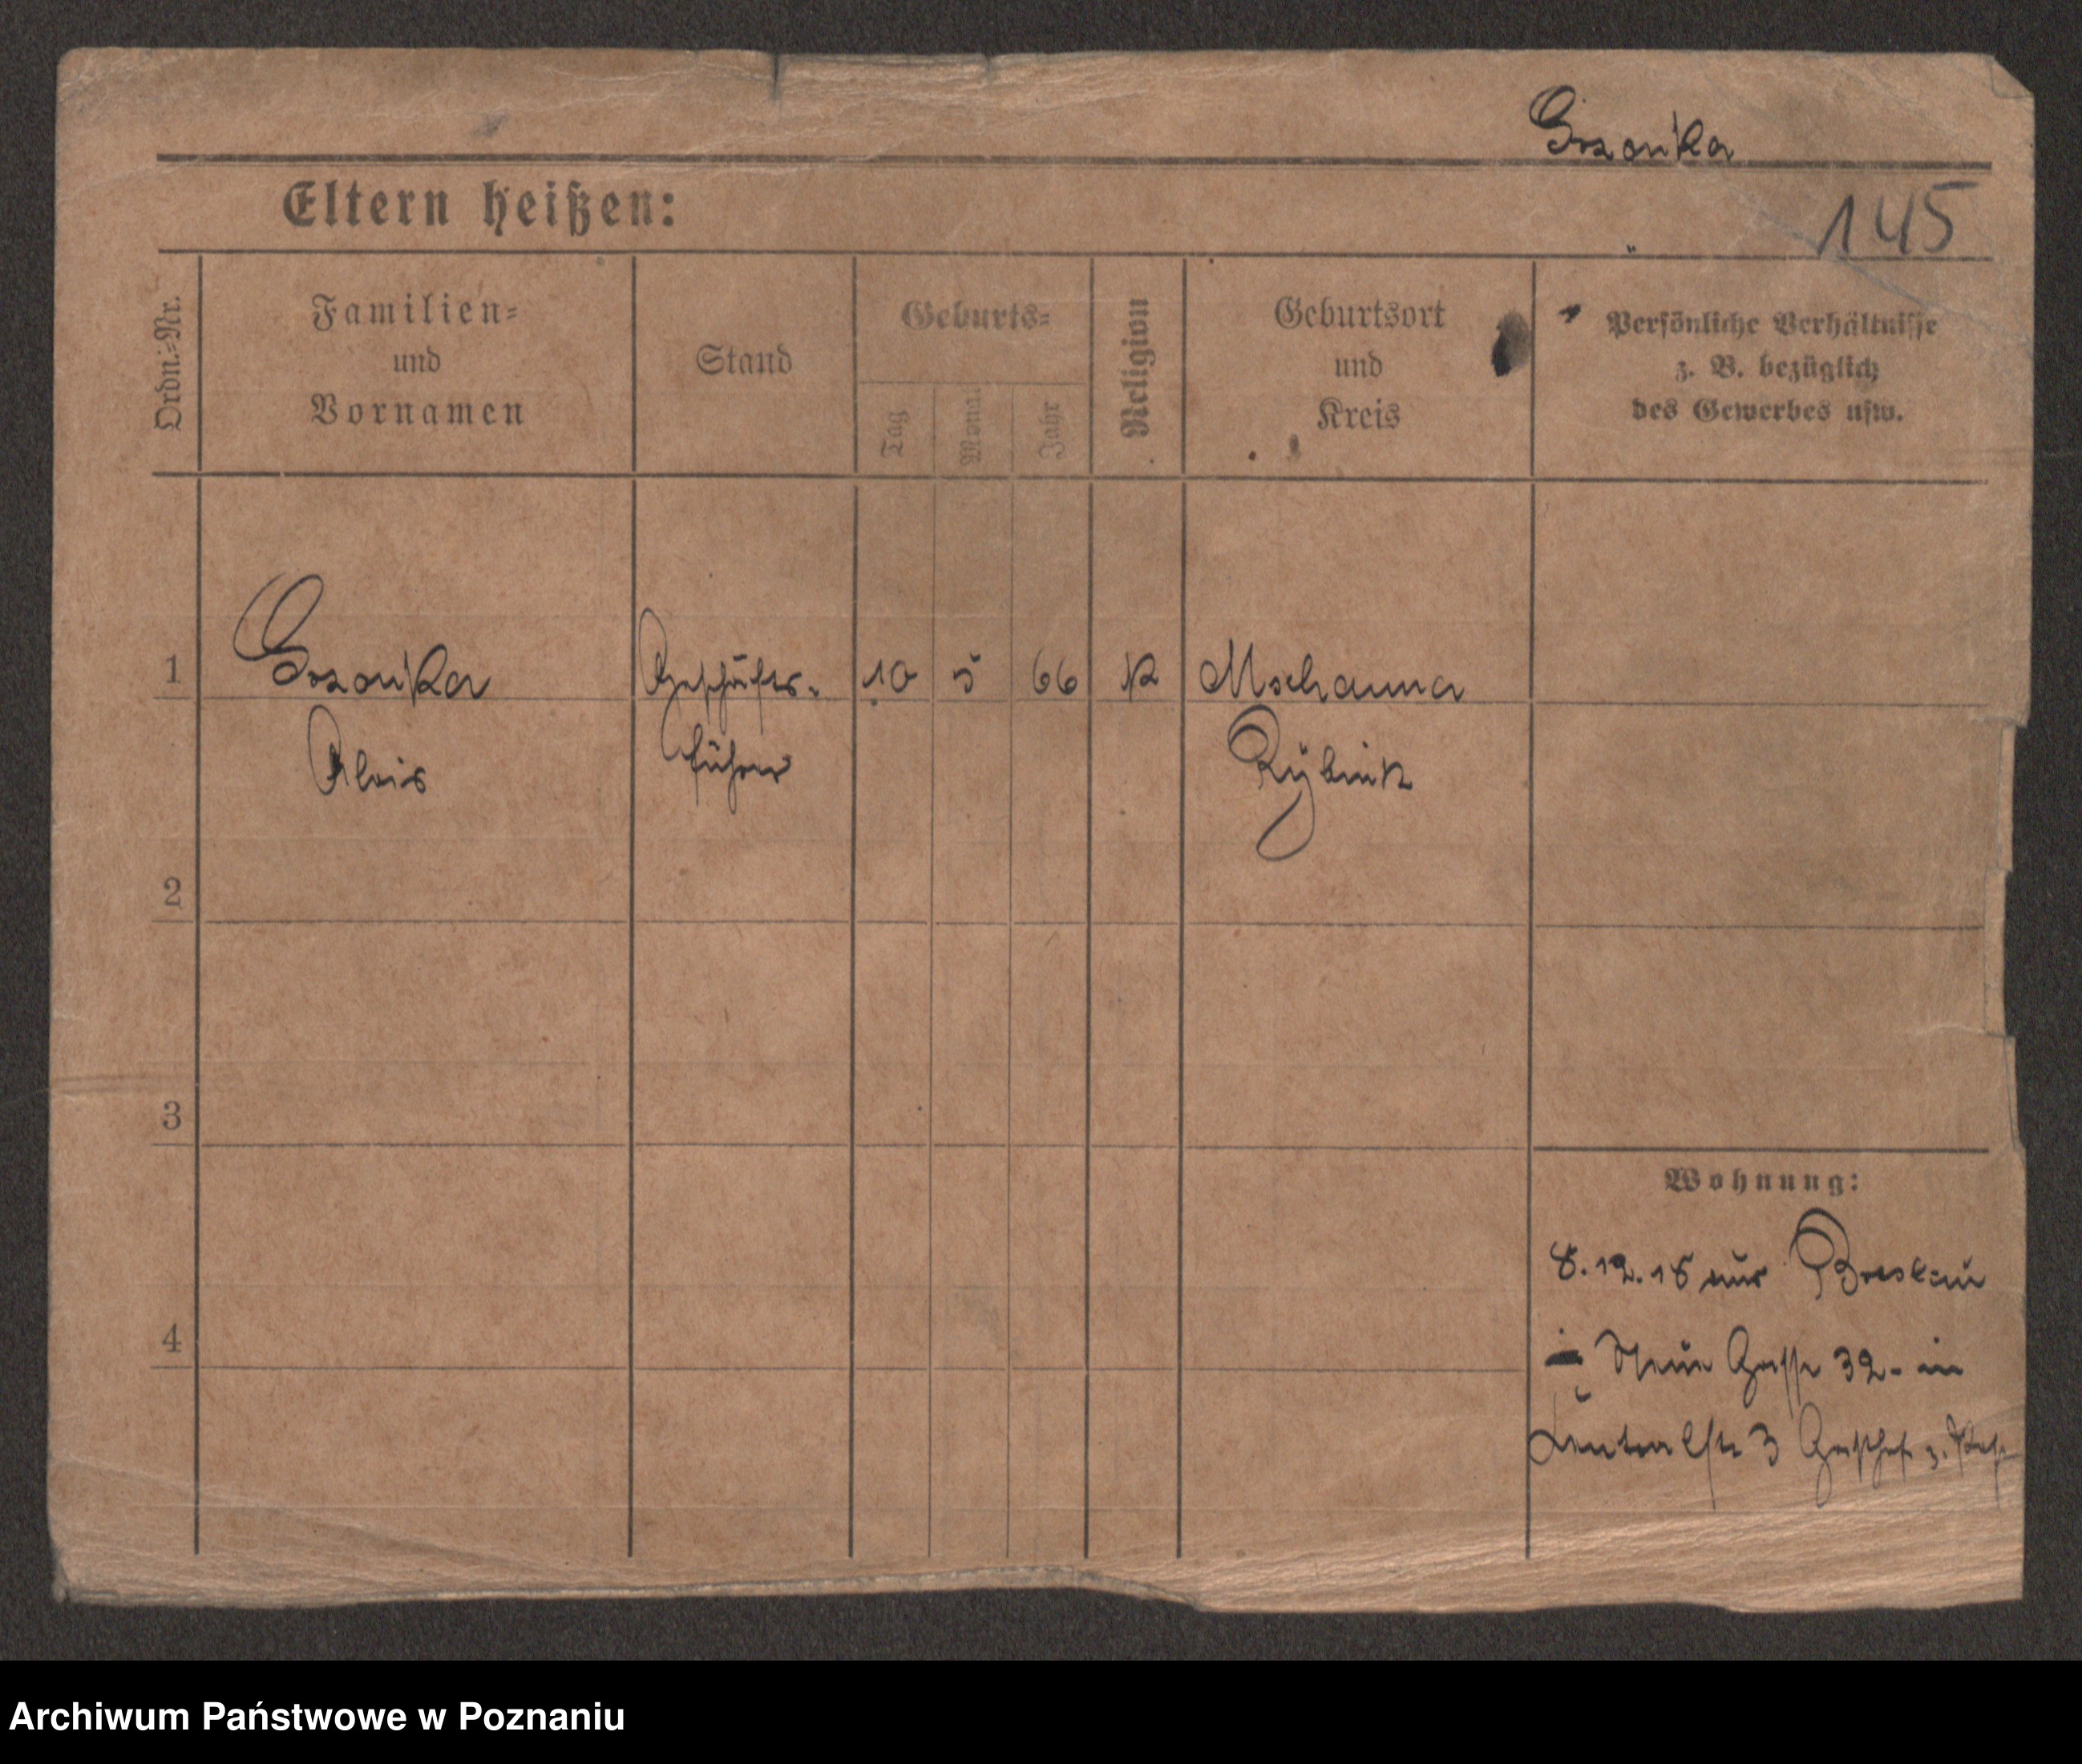 Gozonika
Eltern heißen:
145
Ordn.-Nr.
Familien-
und
Vornamen
Stand
Geburts-
Tag
Mona.
Jahr
Religion
Geburtsort
und
Kreis
Persönliche Verhältnisse
z. B. bezüglich
des Gewerbes usw.
1
Gozonika
Geschäfts-
10
5
66
K
Mschanna
Alois
führer
Rybnik
2
3
Wohnung:
8.12.18 aus Breslau
4
Neue Gasse 32 - in
3 Gasthof z.
Archiwum Państwowe w Poznaniu